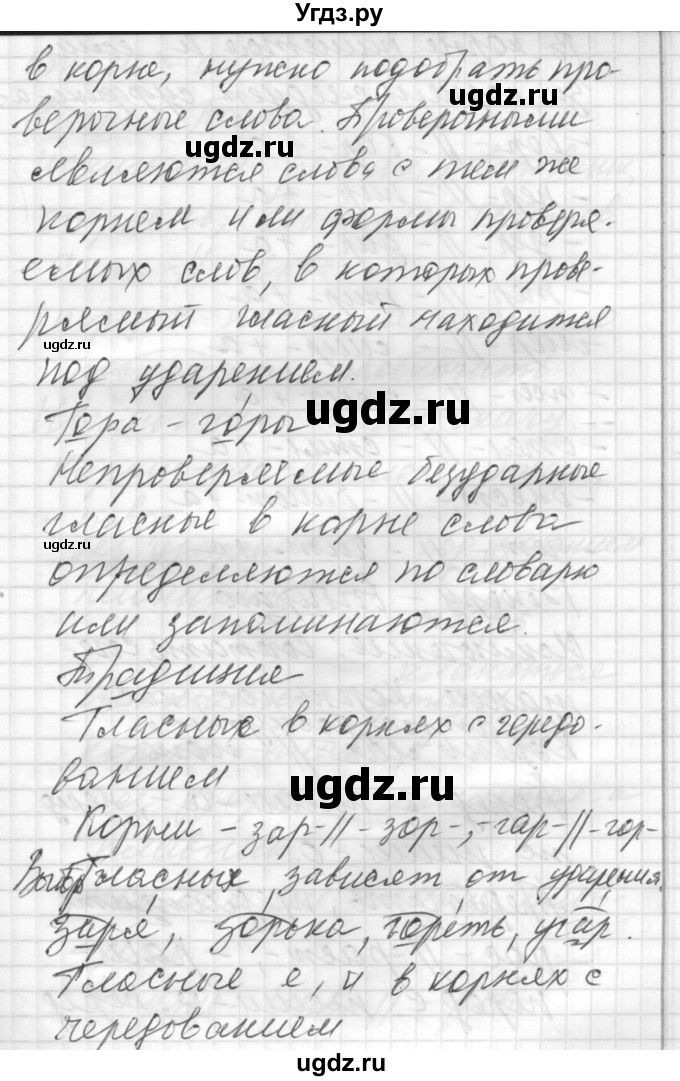 Угдз.ру
в корне, нужно подобрать про-
ugdz.ru
верочные слова. Проверочными
ugdz.ru
являются слова с тем же
корнем или формы проверя-
емых слов, в которых прове-
ряемый гласный находится
ugdz.ru
под ударением.
ugdz.ru
Гора - го́ры
Непроверяемые безударные
гласные в корне слова
ugdz.ru
определяются по словарю
или запоминаются.
Традиция
Гласных в корнях с чередо-
ванием
ugdz.ru
Корни -зар-//-зор-, -гар-//-гор-
Выбор Гласных зависят от ударения.
ugdz.ru
заря́, зо́рька, горе́ть, уга́р.
Гласные е, и в корнях с
чередованием
ugdz.ru